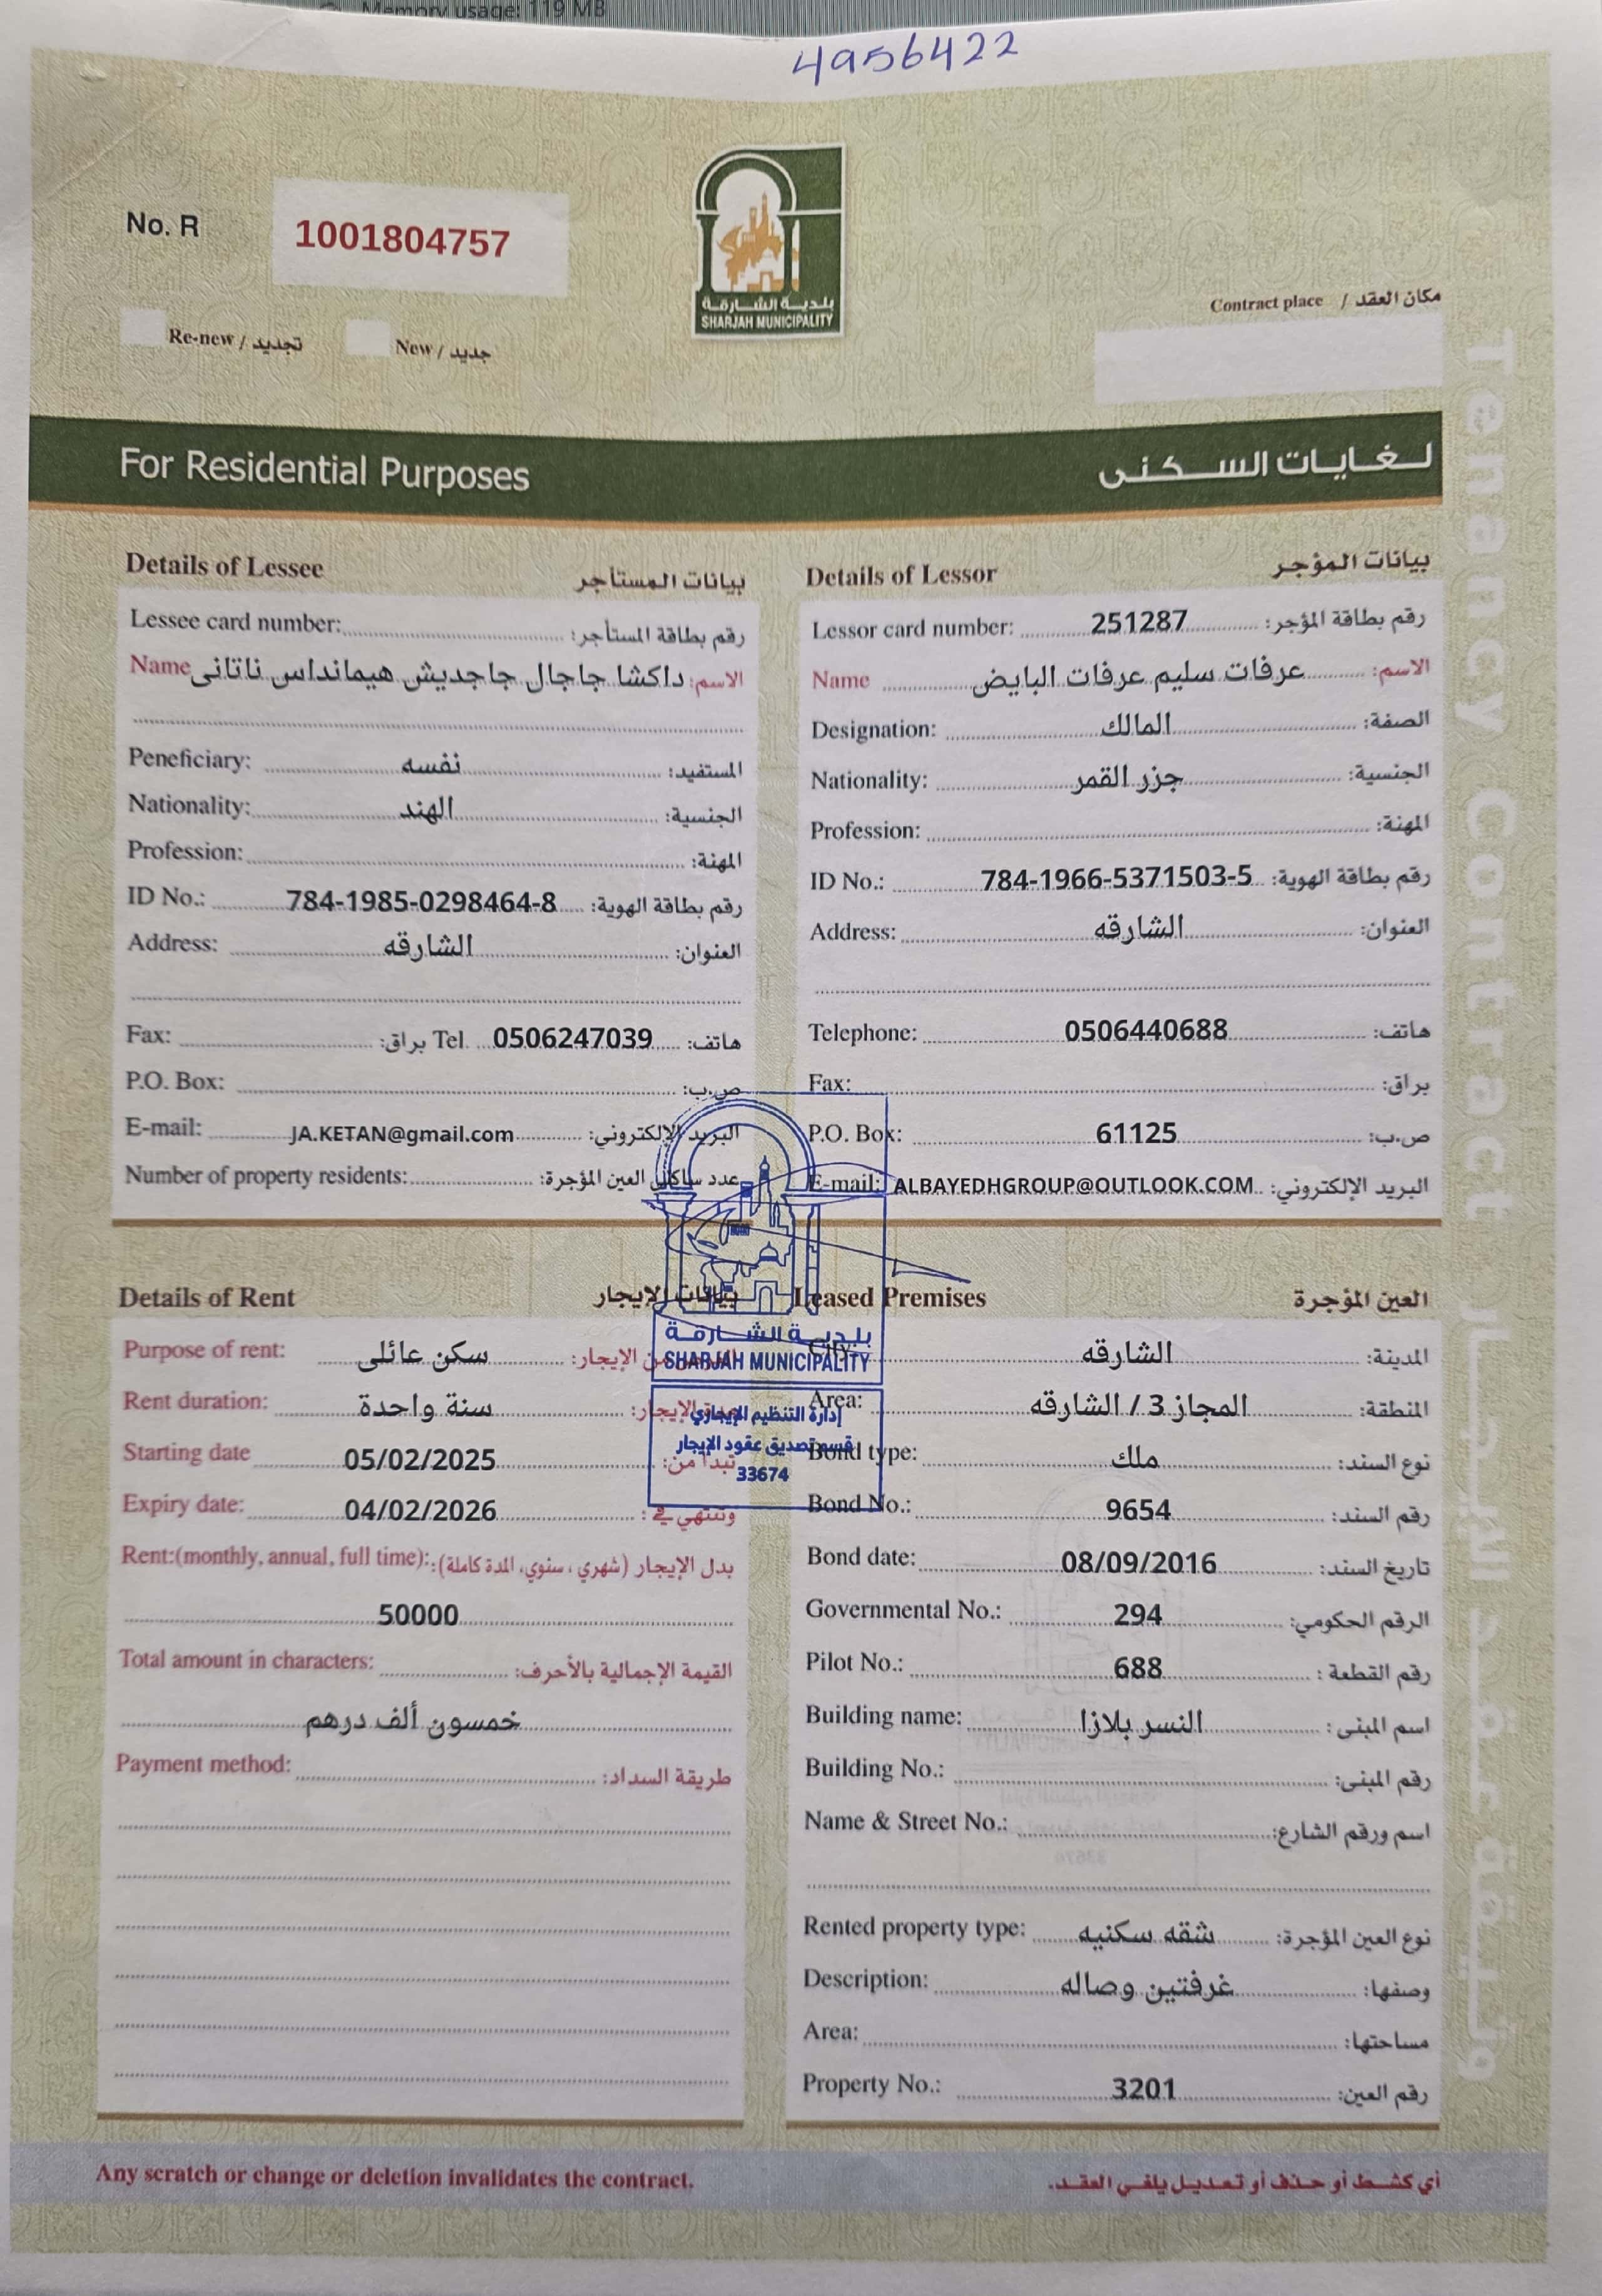 Memory usage: 119 MB
4956422
No. R
1001804757
بلدية الشارقة
SHARJAH MUNICIPALITY
Contract place / مكان العقد
Re-new / تجديد
New / جديد
For Residential Purposes
لغايات السكنى
Tenancy Contract
Details of Lessee بيانات المستأجر
Lessee card number: رقم بطاقة المستأجر:
Name داكشا جاجال جاجديش هيمانداس ناتانى الاسم:
Peneficiary: نفسه المستفيد:
Nationality: الهند الجنسية:
Profession: المهنة:
ID No.: 784-1985-0298464-8 رقم بطاقة الهوية:
Address: الشارقه العنوان:
Fax: براق: Tel 0506247039 هاتف:
P.O. Box: ص.ب:
E-mail: JA.KETAN@gmail.com البريد الإلكتروني:
Number of property residents: عدد ساكني العين المؤجرة:
Details of Lessor بيانات المؤجر
Lessor card number: 251287 رقم بطاقة المؤجر:
Name عرفات سليم عرفات البايض الاسم:
Designation: المالك الصفة:
Nationality: جزر القمر الجنسية:
Profession: المهنة:
ID No.: 784-1966-5371503-5 رقم بطاقة الهوية:
Address: الشارقه العنوان:
Telephone: 0506440688 هاتف:
Fax: براق:
P.O. Box: 61125 ص.ب:
E-mail: ALBAYEDHGROUP@OUTLOOK.COM البريد الإلكتروني:
Details of Rent بيانات الإيجار
Purpose of rent: سكن عائلى الإيجار:
Rent duration: سنة واحدة الإيجار:
Starting date 05/02/2025 تبدأ من:
Expiry date: 04/02/2026 وتنتهي في:
Rent:(monthly, annual, full time): بدل الإيجار (شهري ، سنوي، المدة كاملة):
50000
Total amount in characters: القيمة الإجمالية بالأحرف:
خمسون ألف درهم
Payment method: طريقة السداد:
بلدية الشارقة
SHARJAH MUNICIPALITY
إدارة التنظيم الإيجاري
قسم تصديق عقود الإيجار
33674
Leased Premises العين المؤجرة
City: الشارقه المدينة:
Area: المجاز 3 / الشارقه المنطقة:
Bond type: ملك نوع السند:
Bond No.: 9654 رقم السند:
Bond date: 08/09/2016 تاريخ السند:
Governmental No.: 294 الرقم الحكومي:
Pilot No.: 688 رقم القطعة :
Building name: النسر بلازا اسم المبنى :
Building No.: رقم المبنى:
Name & Street No.: اسم ورقم الشارع:
Rented property type: شقه سكنيه نوع العين المؤجرة:
Description: غرفتين وصاله وصفها:
Area: مساحتها:
Property No.: 3201 رقم العين:
Any scratch or change or deletion invalidates the contract.
أي كشط أو حذف أو تعديل يلغي العقد.